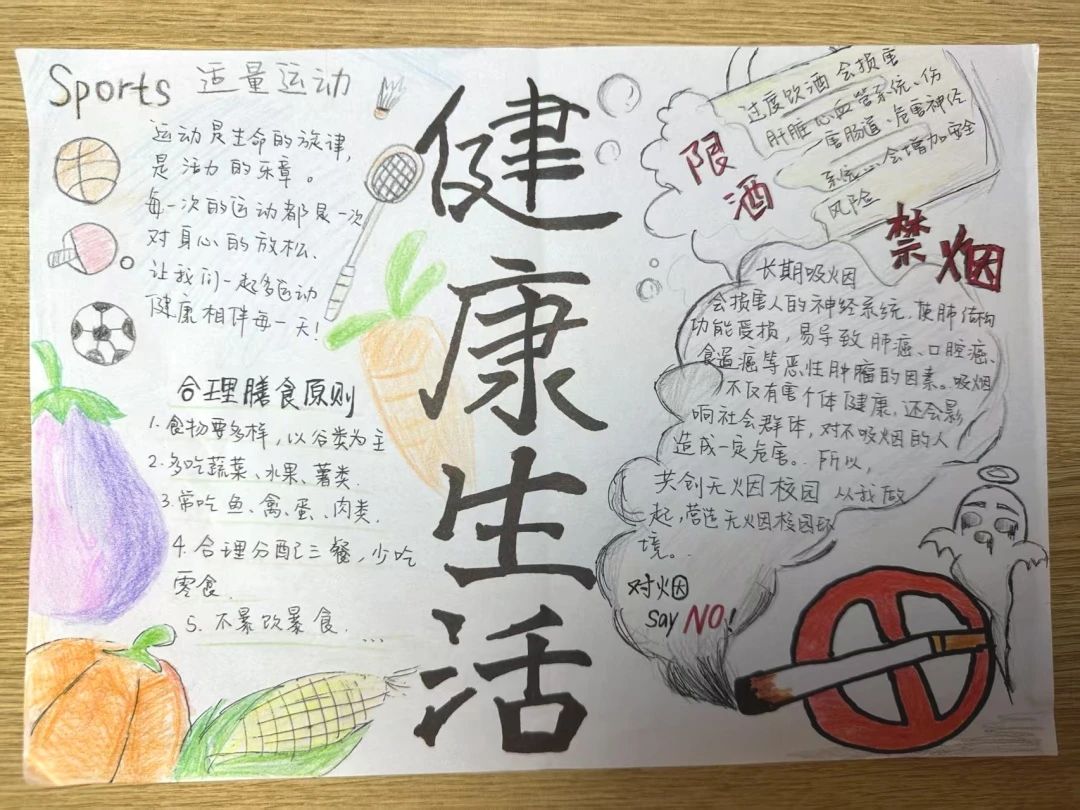 Sports 适量运动
运动是生命的旋律,
是活力的乐章。
每一次的运动都是一次
对身心的放松、
让我们一起多运动
健康相伴每一天!
合理膳食原则
1. 食物要多样,以谷类为主
2. 多吃蔬菜、水果、薯类.
3. 常吃鱼、禽、蛋、肉类.
4. 合理分配三餐,少吃
零食.
5. 不暴饮暴食. ...
健康生活
限酒
过度饮酒会损害
肝脏心血管系统、伤
害肠道、危害神经
系统...会增加安全
风险
禁烟
长期吸烟
会损害人的神经系统.使肺结构
功能受损,易导致肺癌、口腔癌、
食道癌等恶性肿瘤的因素。吸烟
不仅有害个体健康,还会影
响社会群体,对不吸烟的人
造成一定危害。所以,
共创无烟校园 从我做
起,营造无烟校园环
境。
对烟
say NO!